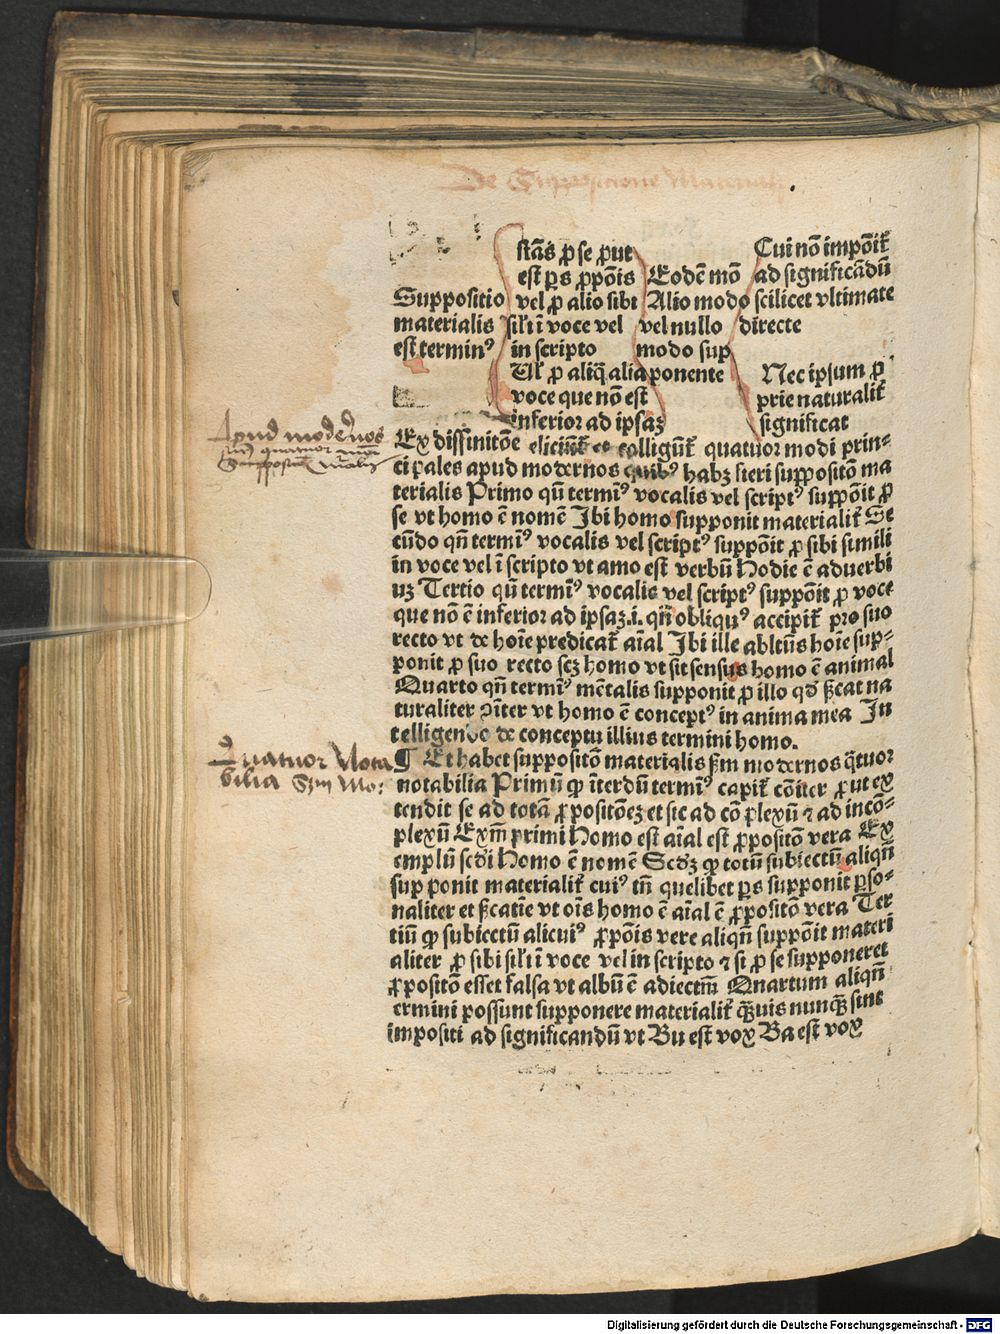 De Suppositione Materiali
Suppositio
materialis
est terminꝰ
stãs ꝓ se ꝓut
est ꝑs ꝓpõis
vel ꝓ alio sibi
sil'i ĩ voce vel
in scripto
Ul' ꝓ aliq̃ alia
voce que nõ est
inferior ad ipsaʒ
Eodẽ mõ
Alio modo
vel nullo
modo sup
ponente
Cui nõ impõit᷑
ad significãdũ
scilicet vltimate
directe
Nec ipsum ꝓ
prie naturalit᷑
significat
Apud modernos
quatuor
Ex diffinitõe et colligũt᷑ quatuor modi prin⸗
cipales apud modernos quibꝰ habʒ fieri suppositõ ma
terialis Primo qñ termĩꝰ vocalis vel scriptꝰ suppõit ꝓ
se vt homo ẽ nomẽ Ibi homo supponit materialit᷑ Se
cũdo qñ termĩꝰ vocalis vel scriptꝰ suppõit ꝓ sibi simili
in voce vel ĩ scripto vt amo est verbũ Hodie ẽ aduerbi
uʒ Tertio qñ termĩꝰ vocalis vel scriptꝰ suppõit ꝓ voce
que nõ ẽ inferior ad ipsaʒ.i. qñ obliquꝰ accipit᷑ pro suo
recto vt de hoĩe predicat᷑ aĩal Ibi ille abltũs hoĩe sup⸗
ponit ꝓ suo recto scʒ homo vt sit sensus homo ẽ animal
Quarto qñ termĩꝰ mẽtalis supponit ꝓ illo qđ ẞcat na
turaliter ꝯĩter vt homo ẽ conceptꝰ in anima mea In
telligendo de conceptu illius termini homo.
Quatuor Nota
bilia Sʒm Mo:
¶ Et habet suppositõ materialis ẞm modernos q̃tuor
notabilia Primũ ꝙ ĩterdũ termĩꝰ capit᷑ cõiter ꝓut ex
tendit se ad totã ꝓpositõeʒ et sic ad cõplexũ ⁊ ad incõ⸗
plexũ Exm̃ primi Homo est aĩal est ꝓpositõ vera Ex
emplũ scđi Homo ẽ nomẽ Scđʒ ꝙ totũ subiectũ aliqñ
supponit materialit᷑ cuiꝰ tñ quelibet ꝑs supponit ꝑso⸗
naliter et ẞcatĩe vt oĩs homo ẽ aĩal ẽ ꝓpositõ vera Ter
tiũ ꝙ subiectũ alicuiꝰ ꝓpõis vere aliqñ suppõit materi
aliter ꝓ sibi sil'i ĩ voce vel in scripto ⁊ si ꝓ se supponeret
ꝓpositõ esset falsa vt albũ ẽ adiectm̃ Quartum aliqñ
ermini possunt supponere materialit᷑ q̃uis nunq̃ sint
impositi ad significandũ vt Bu est vox Ba est vox
Digitalisierung gefördert durch die Deutsche Forschungsgemeinschaft - DFG